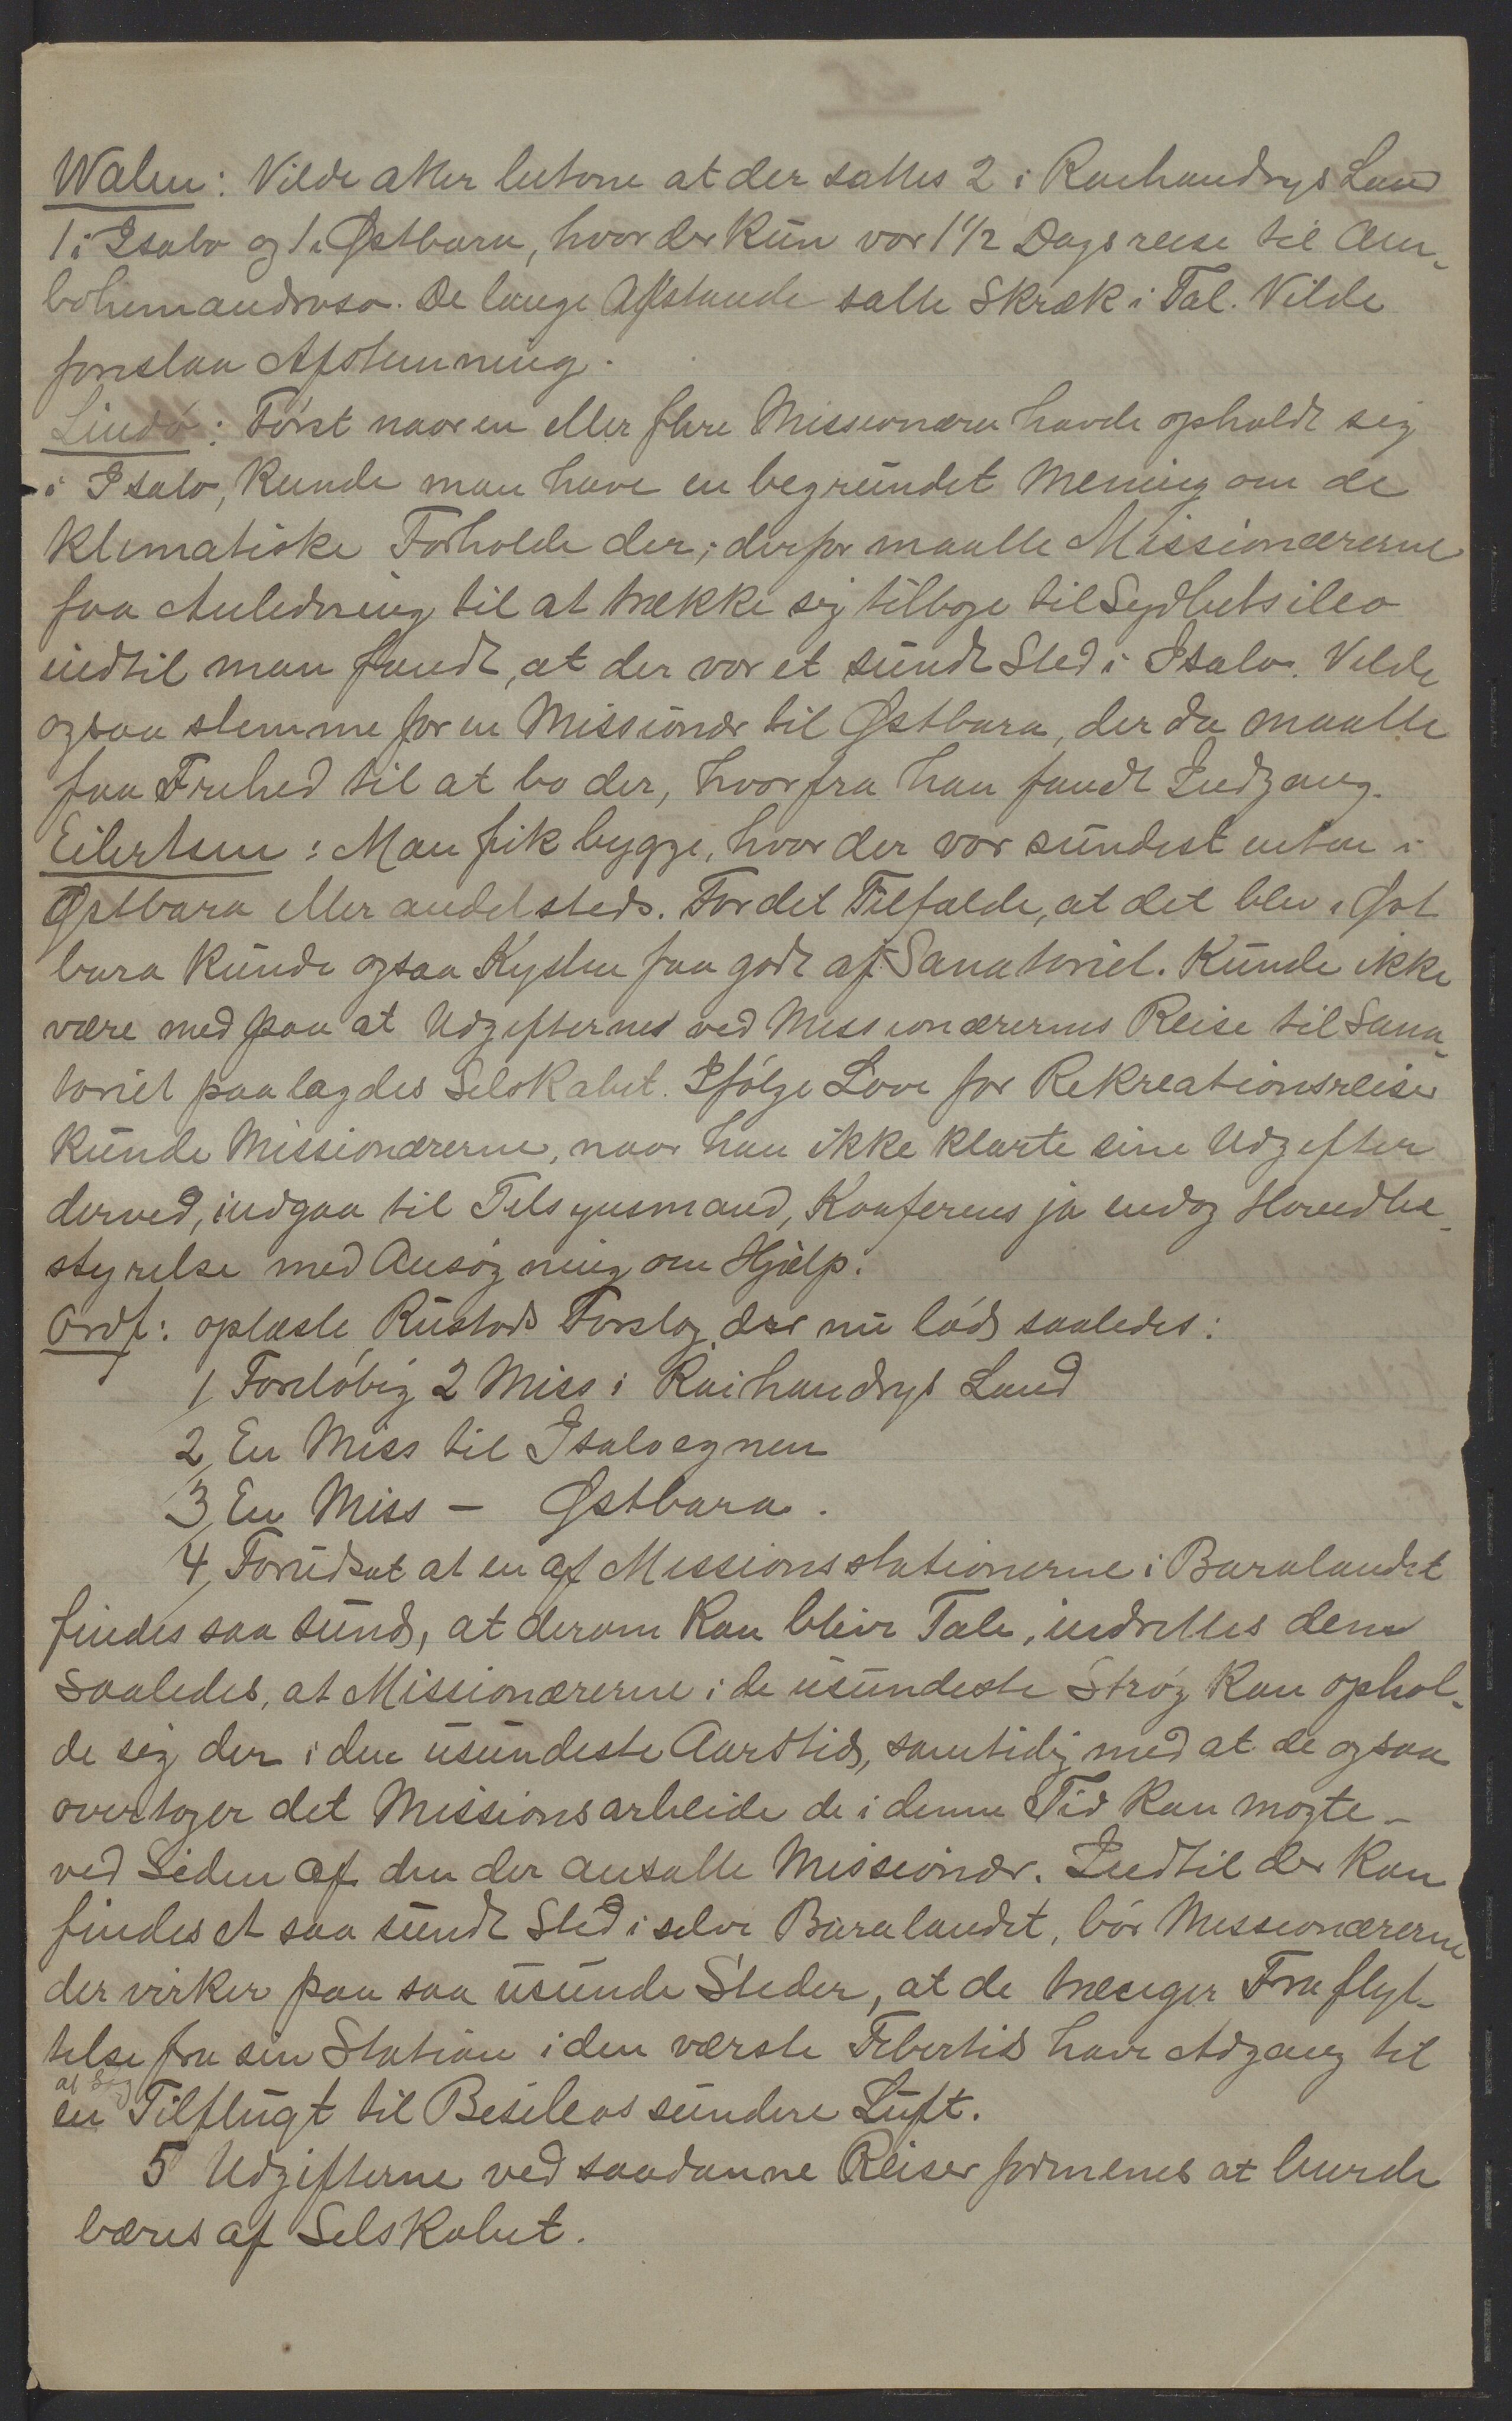 Walen: Vilde atter betone at der sattes 2 i Raihandrys Land
1 i Isalo og 1 i Østbara, hvor der kun var 1 1/2 Dagsreise til Am-
bohimandroso. De lange Afstande satte Skræk i Tal. Vilde
foreslaa Afstemning.
Lindø: Først naar en eller flere Missionærer havde opholdt sig
i Isalo, kunde man have en begrundet Mening om de
klimatiske Forholde der; derfor maatte Missionærerne
faa Anledning til at trække sig tilbage til Sydbetsileo
indtil man fandt, at der var et sundt Sted i Isalo. Vilde
ogsaa stemme for en Missionær til Østbara, der da maatte
faa Frihed til at bo der, hvorfra han fandt Indgang.
Eilertsen: Man fik bygge, hvor der var sundest enten i
Østbara eller andetsteds. For det Tilfælde, at det blev i Øst
bara kunde ogsaa Kysten faa godt af Sanatoriet. Kunde ikke
være med paa at Udgifterne ved Missionærernes Reise til Sana-
toriet paalagdes Selskabet. Ifølge Love for Rekreationsreiser
kunde Missionærerne, naar han ikke klarte sine Udgifter
derved, indgaa til Tilsynsmand, Konferens ja endog Hovedbe-
styrelse med Ansøgning om Hjælp.
Ordf: oplæste Rustads Forslag der nu lød saaledes:
1, Foreløbig 2 Miss i Raihandrys Land
2, En Miss til Isaloegnen
3, En Miss - Østbara.
4, Forudsat at en af Missionsstationerne i Baralandet
findes saa sund, at derom kan blive Tale, indrettes den
saaledes, at Missionærerne i de usundeste Strøg kan ophol-
de sig der i den usundeste Aarstid, samtidig med at de ogsaa
overtager det Missionsarbeide de i denne Tid kan magte -
ved Siden af den der ansatte Missionær. Indtil der kan
findes et saa sundt Sted i selve Baralandet, bør Missionærerne
der virker paa saa usunde Steder, at de trænger Fraflyt-
telse fra sin Station i den værste Febertid have Adgang til
at søg
en Tilflugt til Besileos sundere Luft.
5 Udgifterne ved saadanne Reiser formenes at burde
bæres af Selskabet.